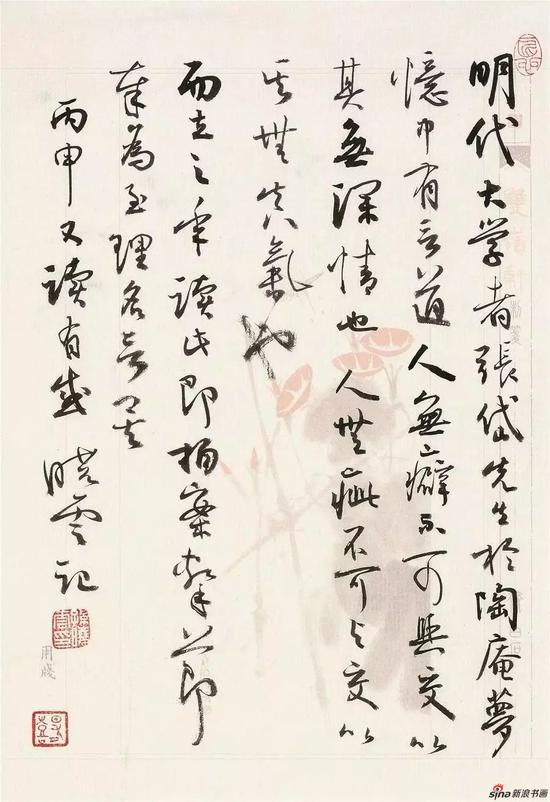 明代大学者張岱先生於陶庵夢
憶中有言道人無癖不可與交以
其無深情也人無疵不可与交以
其無真氣也
而立之年读此即拍案擊節
奉為至理名言矣
丙申又读有感 晓雲记
用牋
sina新浪书画